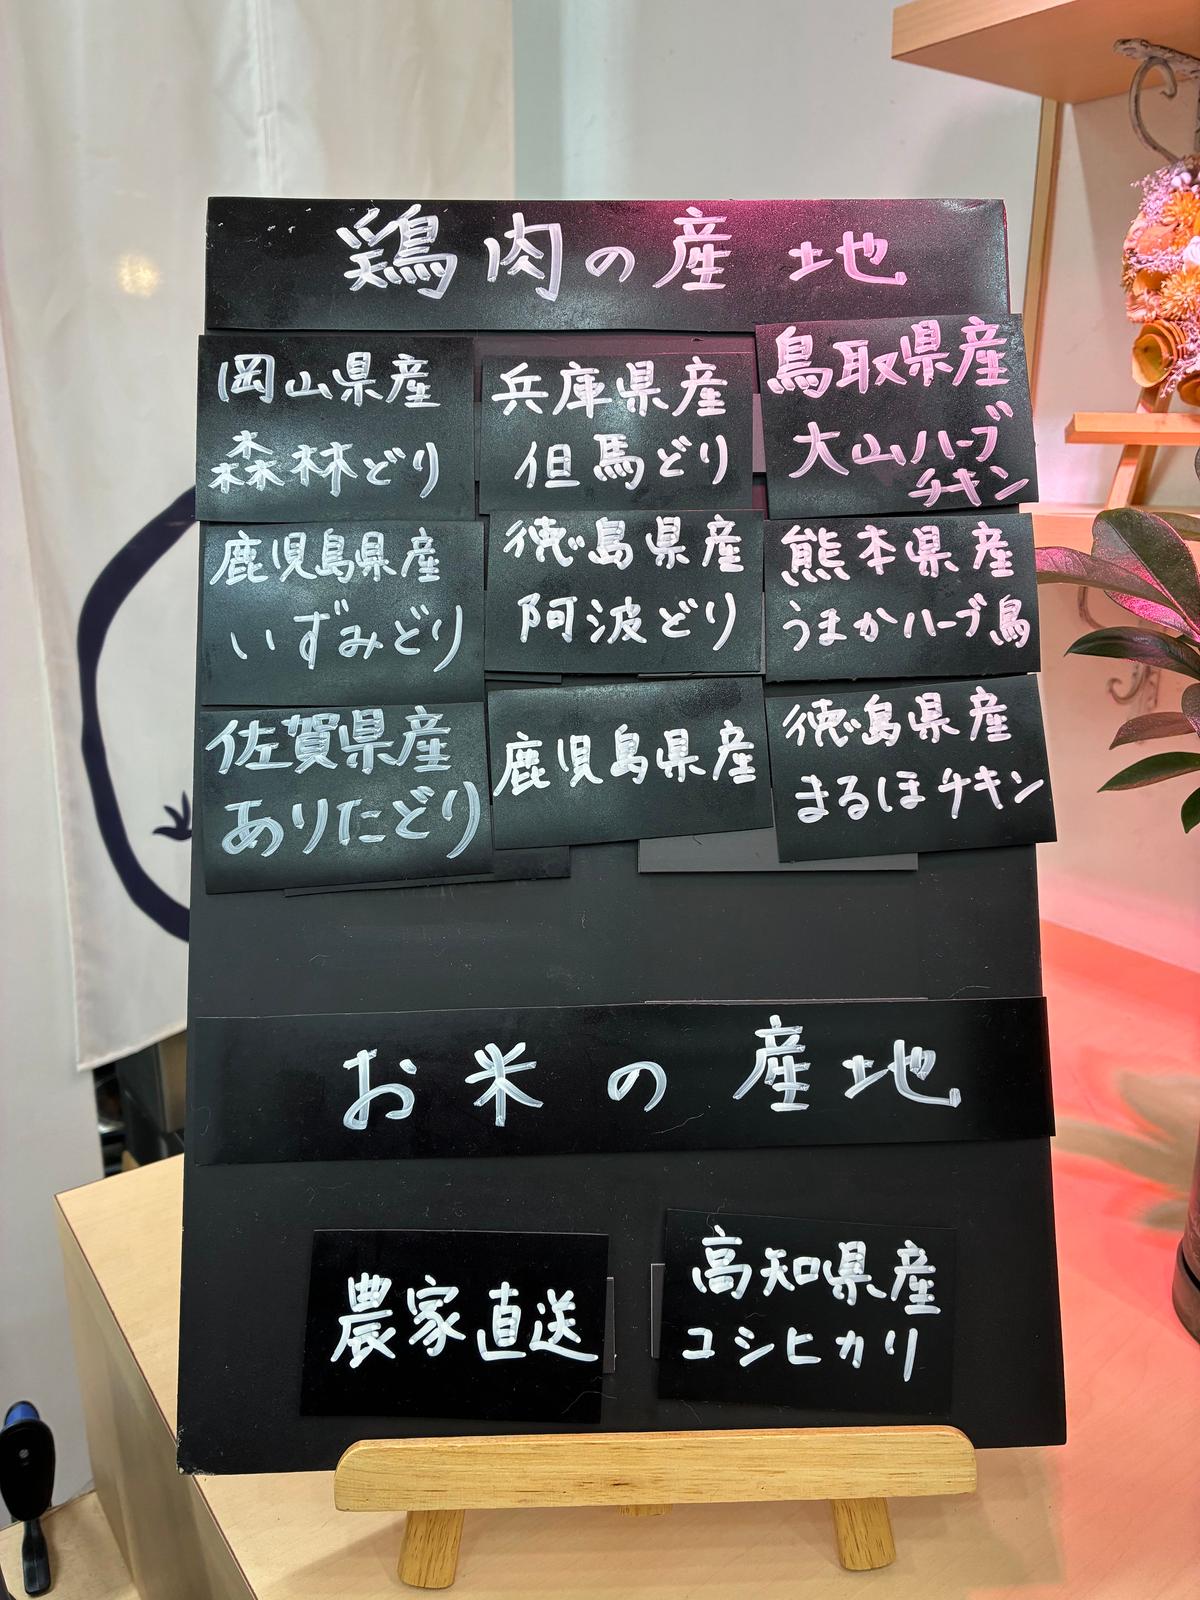 鶏肉の産地
岡山県産
森林どり
兵庫県産
但馬どり
鳥取県産
大山ハーブ
チキン
鹿児島県産
いずみどり
徳島県産
阿波どり
熊本県産
うまかハーブ鳥
佐賀県産
ありたどり
鹿児島県産
徳島県産
まるほチキン
お米の産地
農家直送
高知県産
コシヒカリ